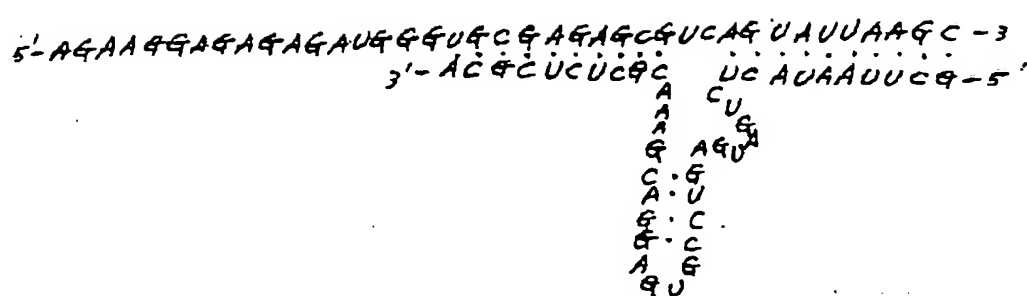 5'-AGAAGGAGAGAGAUGGGUGCGAGAGCGUCAGUAUUAAGC-3
3'-ACGCUCUCGC UC AUAAUUCG-5'
A C
A U
A G
G AGUA
C · G
A · U
G · C
G · C
A G
G U